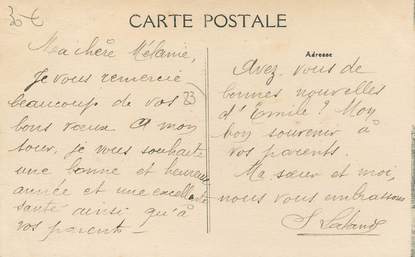 CARTE POSTALE
Ma chère Mélanie,
Je vous remercie
beaucoup de vos
bons vœux. A mon
tour, je vous souhaite
une bonne et heureuse
année et une excellente
santé ainsi qu'à
vos parents —
23
Adresse
Avez-vous de
bonnes nouvelles
d'Emile ? Mon
bon souvenir à
vos parents.
Ma sœur et moi,
nous vous embrassons